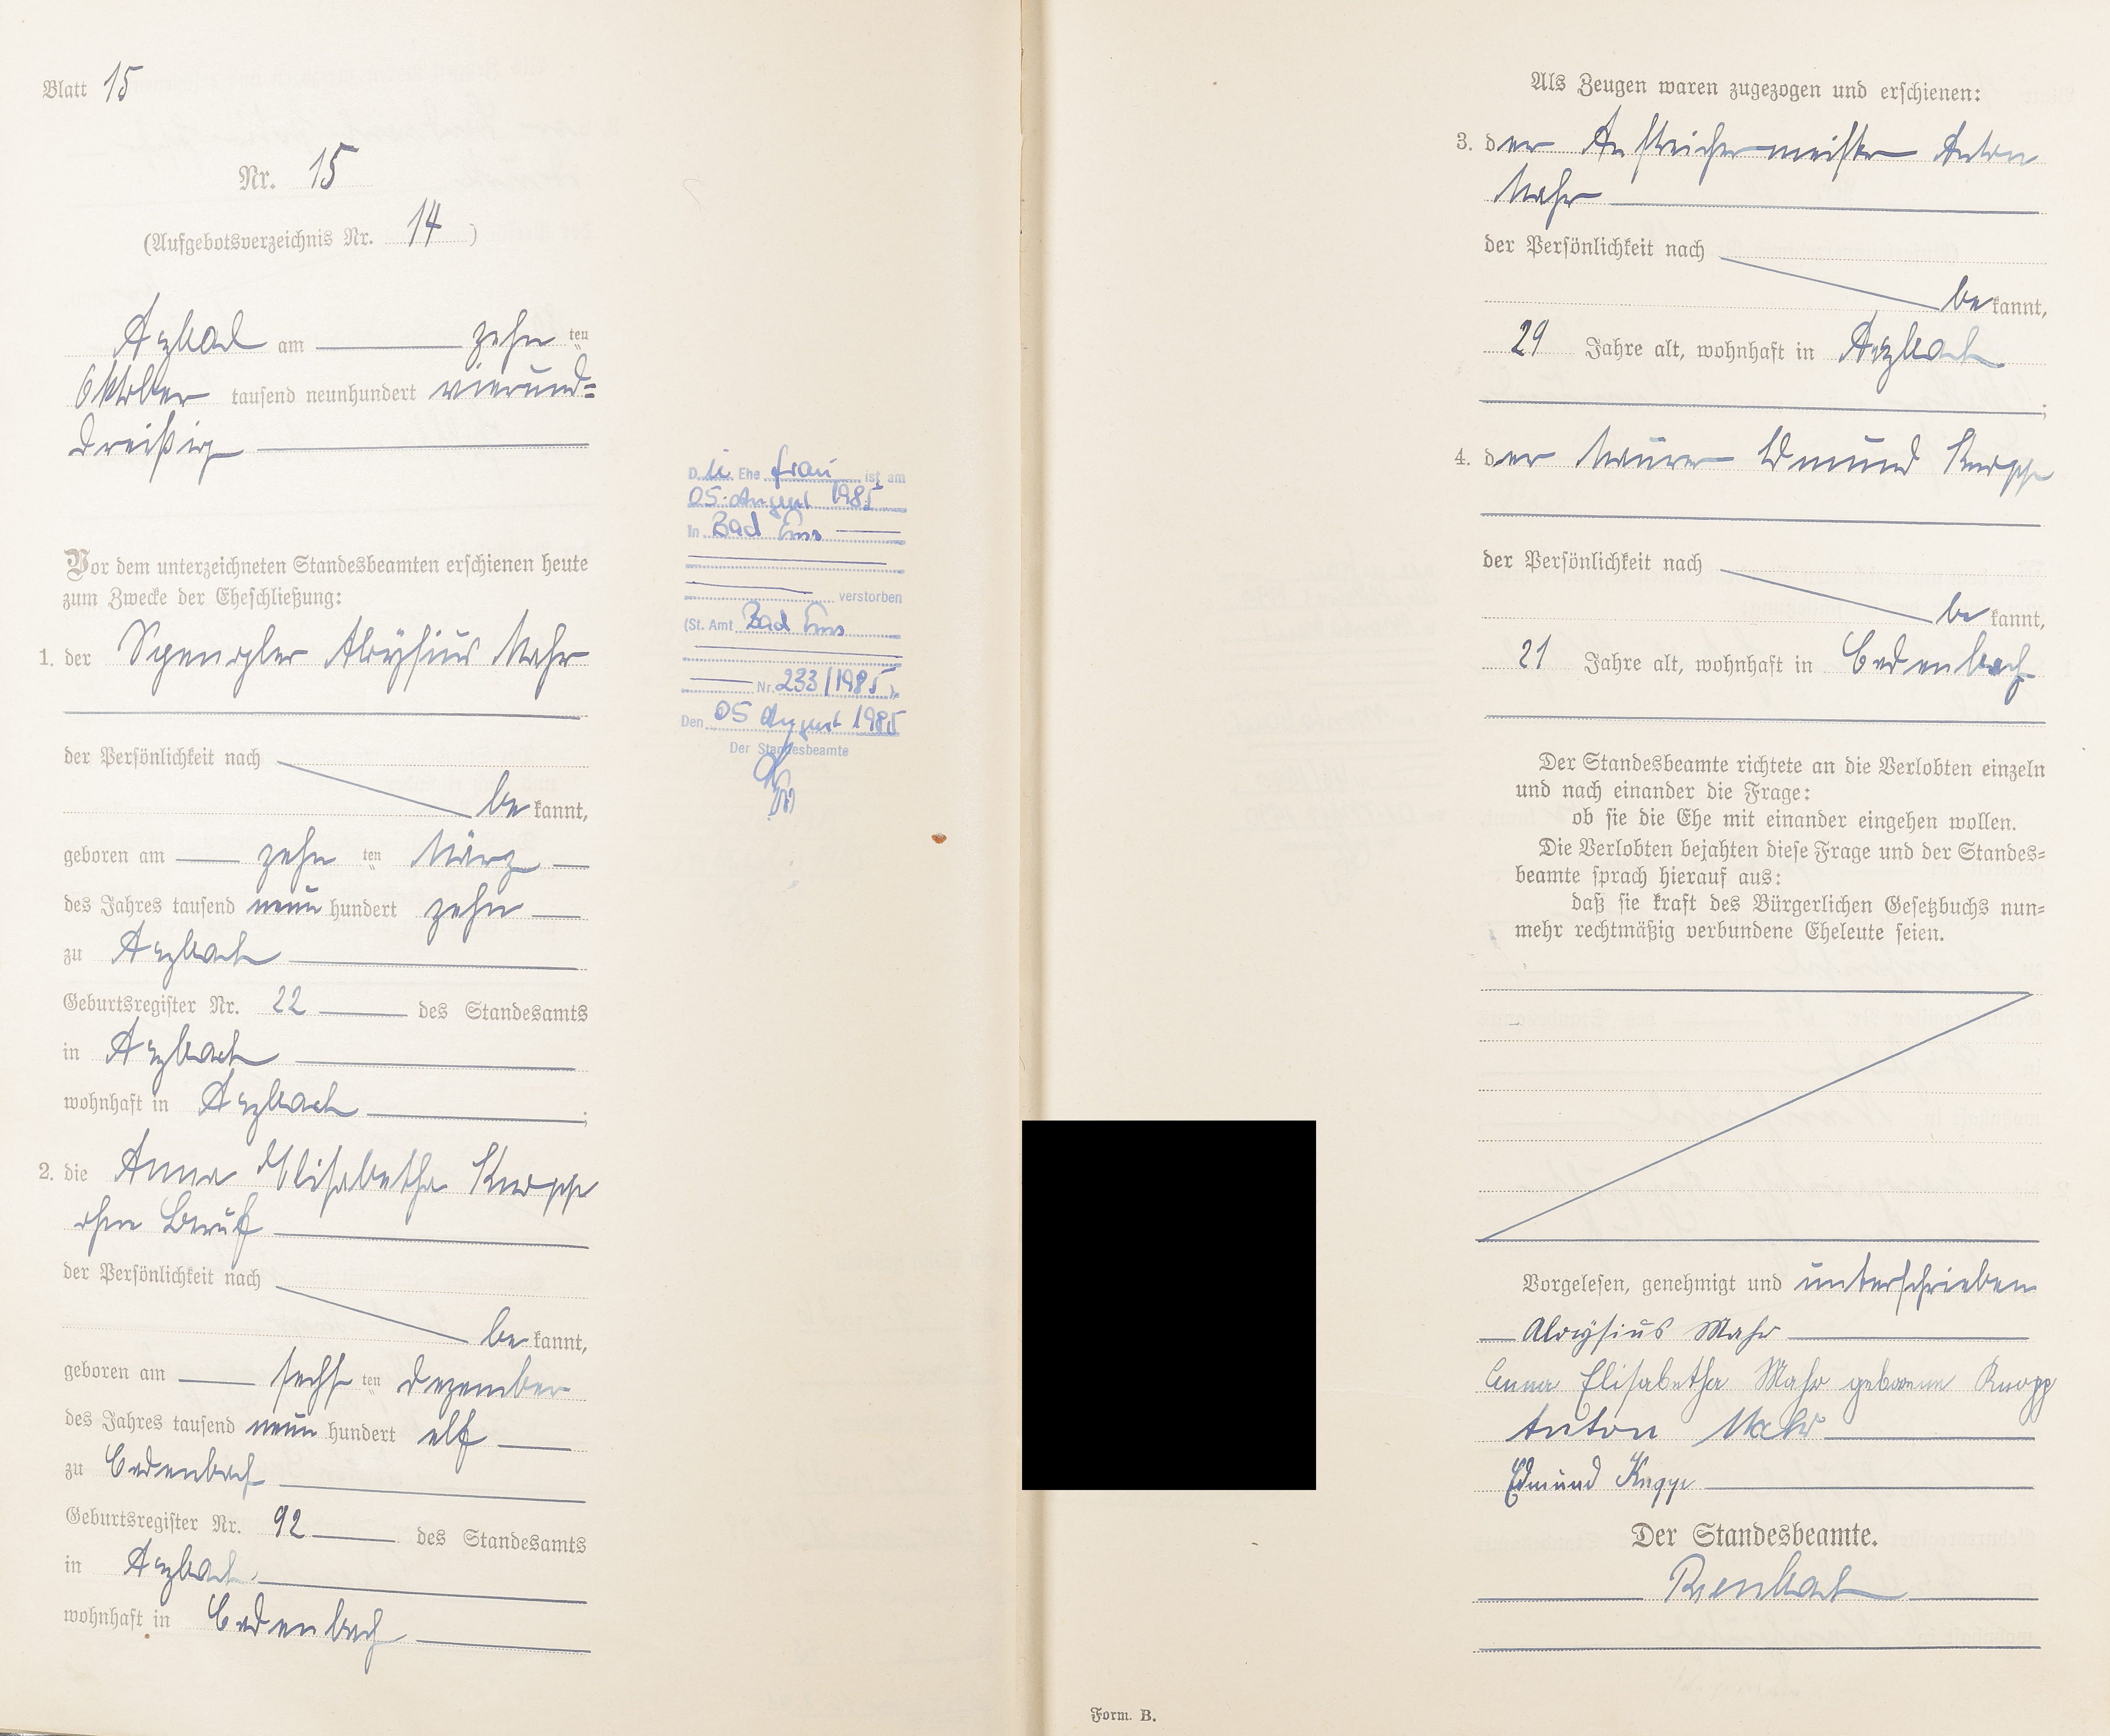 Blatt 15
Nr. 15
(Aufgebotsverzeichnis Nr. 14)
Arzbach am zehn ten
Oktober tausend neunhundert vierund=
dreißig
Vor dem unterzeichneten Standesbeamten erschienen heute
zum Zwecke der Eheschließung:
1. der Spengler Aloysius Mahr
der Persönlichkeit nach
be kannt,
geboren am zehn ten März
des Jahres tausend neun hundert zehn
zu Arzbach
Geburtsregister Nr. 22 des Standesamts
in Arzbach
wohnhaft in Arzbach ;
2. die Anna Elisabetha Knopp
ohne Beruf
der Persönlichkeit nach
be kannt,
geboren am sechs ten Dezember
des Jahres tausend neun hundert elf
zu Cadenbach
Geburtsregister Nr. 92 des Standesamts
in Arzbach
wohnhaft in Cadenbach
Die Ehe frau ist am
05. August 1985
in Bad Ems
verstorben
(St. Amt Bad Ems
Nr. 233/1985).
Den 05 August 1985
Der Standesbeamte
Als Zeugen waren zugezogen und erschienen:
3. der Anstreichermeister Anton
Mahr
der Persönlichkeit nach
be kannt,
29 Jahre alt, wohnhaft in Arzbach
;
4. der Maurer Edmund Knopp
der Persönlichkeit nach
be kannt,
21 Jahre alt, wohnhaft in Cadenbach
Der Standesbeamte richtete an die Verlobten einzeln
und nach einander die Frage:
ob sie die Ehe mit einander eingehen wollen.
Die Verlobten bejahten diese Frage und der Standes=
beamte sprach hierauf aus:
daß sie kraft des Bürgerlichen Gesetzbuchs nun=
mehr rechtmäßig verbundene Eheleute seien.
Vorgelesen, genehmigt und unterschrieben
Aloysius Mahr
Anna Elisabetha Mahr geborene Knopp
Anton Mahr
Edmund Knopp
Der Standesbeamte.
Form. B.